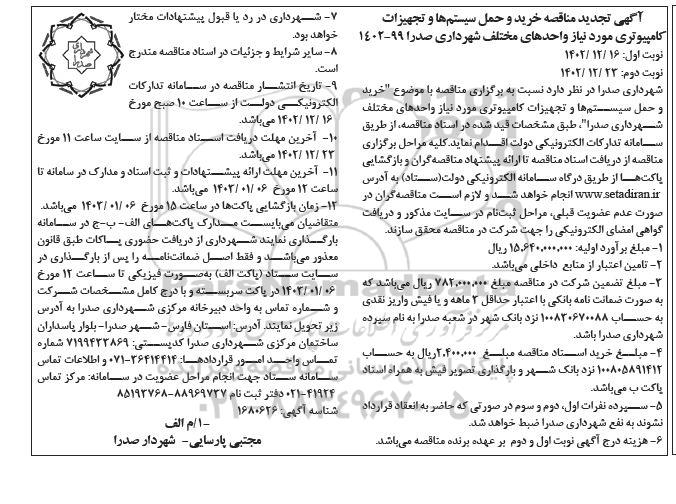 آگهی تجدید مناقصه خرید و حمل سیستم‌ها و تجهیزات
کامپیوتری مورد نیاز واحدهای مختلف شهرداری صدرا ۹۹-۱۴۰۲
نوبت اول: ۱۶ /۱۲ /۱۴۰۲
نوبت دوم: ۲۳ /۱۲ /۱۴۰۲
شهرداری صدرا در نظر دارد نسبت به برگزاری مناقصه با موضوع "خرید
و حمل سیستم‌ها و تجهیزات کامپیوتری مورد نیاز واحدهای مختلف
شهرداری صدرا"، طبق مشخصات قید شده در اسناد مناقصه، از طریق
سامانه تدارکات الکترونیکی دولت اقدام نماید.کلیه مراحل برگزاری
مناقصه از دریافت اسناد مناقصه تا ارائه پیشنهاد مناقصه‌گران و بازگشایی
پاکت‌ها از طریق درگاه سامانه الکترونیکی دولت(ستاد) به آدرس
www.setadiran.ir انجام خواهد شد و لازم است مناقصه‌گران در
صورت عدم عضویت قبلی، مراحل ثبت‌نام در سایت مذکور و دریافت
گواهی امضای الکترونیکی را جهت شرکت در مناقصه محقق سازند.
۱- مبلغ برآورد اولیه: ۱۵،۶۴۰،۰۰۰،۰۰۰ ریال می‌باشد.
۲- تامین اعتبار از منابع داخلی می‌باشد.
۳- مبلغ تضمین شرکت در مناقصه مبلغ ۷۸۲،۰۰۰،۰۰۰ ریال می‌باشد که
به صورت ضمانت نامه بانکی با اعتبار حداقل ۳ ماهه و یا فیش واریز نقدی
به حساب ۱۰۰۸۲۰۶۷۰۰۸۸ نزد بانک شهر در شعبه صدرا به نام سپرده
شهرداری صدرا باشد.
۴- مبلغ خرید اسناد مناقصه مبلغ ۲،۴۰۰،۰۰۰ریال به حساب
۱۰۰۸۰۵۸۹۱۴۱۲ نزد بانک شهر و بارگذاری تصویر فیش به همراه اسناد
پاکت ب می‌باشد.
۵- سپرده نفرات اول، دوم و سوم در صورتی که حاضر به انعقاد قرارداد
نشوند به نفع شهرداری صدرا ضبط خواهد شد.
۶- هزینه درج آگهی نوبت اول و دوم بر عهده برنده مناقصه می‌باشد.
۷- شهرداری در رد یا قبول پیشنهادات مختار
خواهد بود.
۸- سایر شرایط و جزئیات در اسناد مناقصه مندرج
است.
۹- تاریخ انتشار مناقصه در سامانه تدارکات
الکترونیکی دولت از ساعت ۱۰ صبح مورخ
۱۶ /۱۲ /۱۴۰۲ می‌باشد.
۱۰- آخرین مهلت دریافت اسناد مناقصه از سایت ساعت ۱۱ مورخ
۲۳ /۱۲ /۱۴۰۲ می‌باشد.
۱۱- آخرین مهلت ارائه پیشنهادات و ثبت اسناد و مدارک در سامانه تا
ساعت ۱۲ مورخ ۰۶ /۰۱ /۱۴۰۳ می‌باشد.
۱۲- زمان بازگشایی پاکت‌ها در ساعت ۱۵ مورخ ۰۶ /۰۱ /۱۴۰۳ می‌باشد.
متقاضیان می‌بایست مدارک پاکت‌های الف- ب-ج در سامانه
بارگذاری نمایند شهرداری از دریافت حضوری پاکات طبق قانون
معذور می‌باشد و فقط اصل ضمانت‌نامه را پس از بارگذاری در
سایت ستاد (پاکت الف) به‌صورت فیزیکی تا ساعت ۱۲ مورخ
۱۴۰۳/۰۱/۰۶ در پاکت سربسته و با درج کامل مشخصات شرکت
و شماره تماس به واحد دبیرخانه مرکزی شهرداری صدرا به آدرس
زیر تحویل نمایند. آدرس: استان فارس- شهر صدرا- بلوار پاسداران
ساختمان مرکزی شهرداری صدرا کدپستی: ۷۱۹۹۴۳۳۸۶۹ شماره
تماس واحد امور قراردادها: ۳۶۴۱۴۴۱۴-۰۷۱ و اطلاعات تماس
سامانه ستاد جهت انجام مراحل عضویت در سامانه: مرکز تماس
۴۱۹۳۴-۰۲۱ دفتر ثبت نام ۸۸۹۶۹۷۳۷-۸۵۱۹۳۷۶۸
شناسه آگهی: ۱۶۸۰۶۲۶
۱/م الف-
مجتبی پارسایی- شهردار صدرا